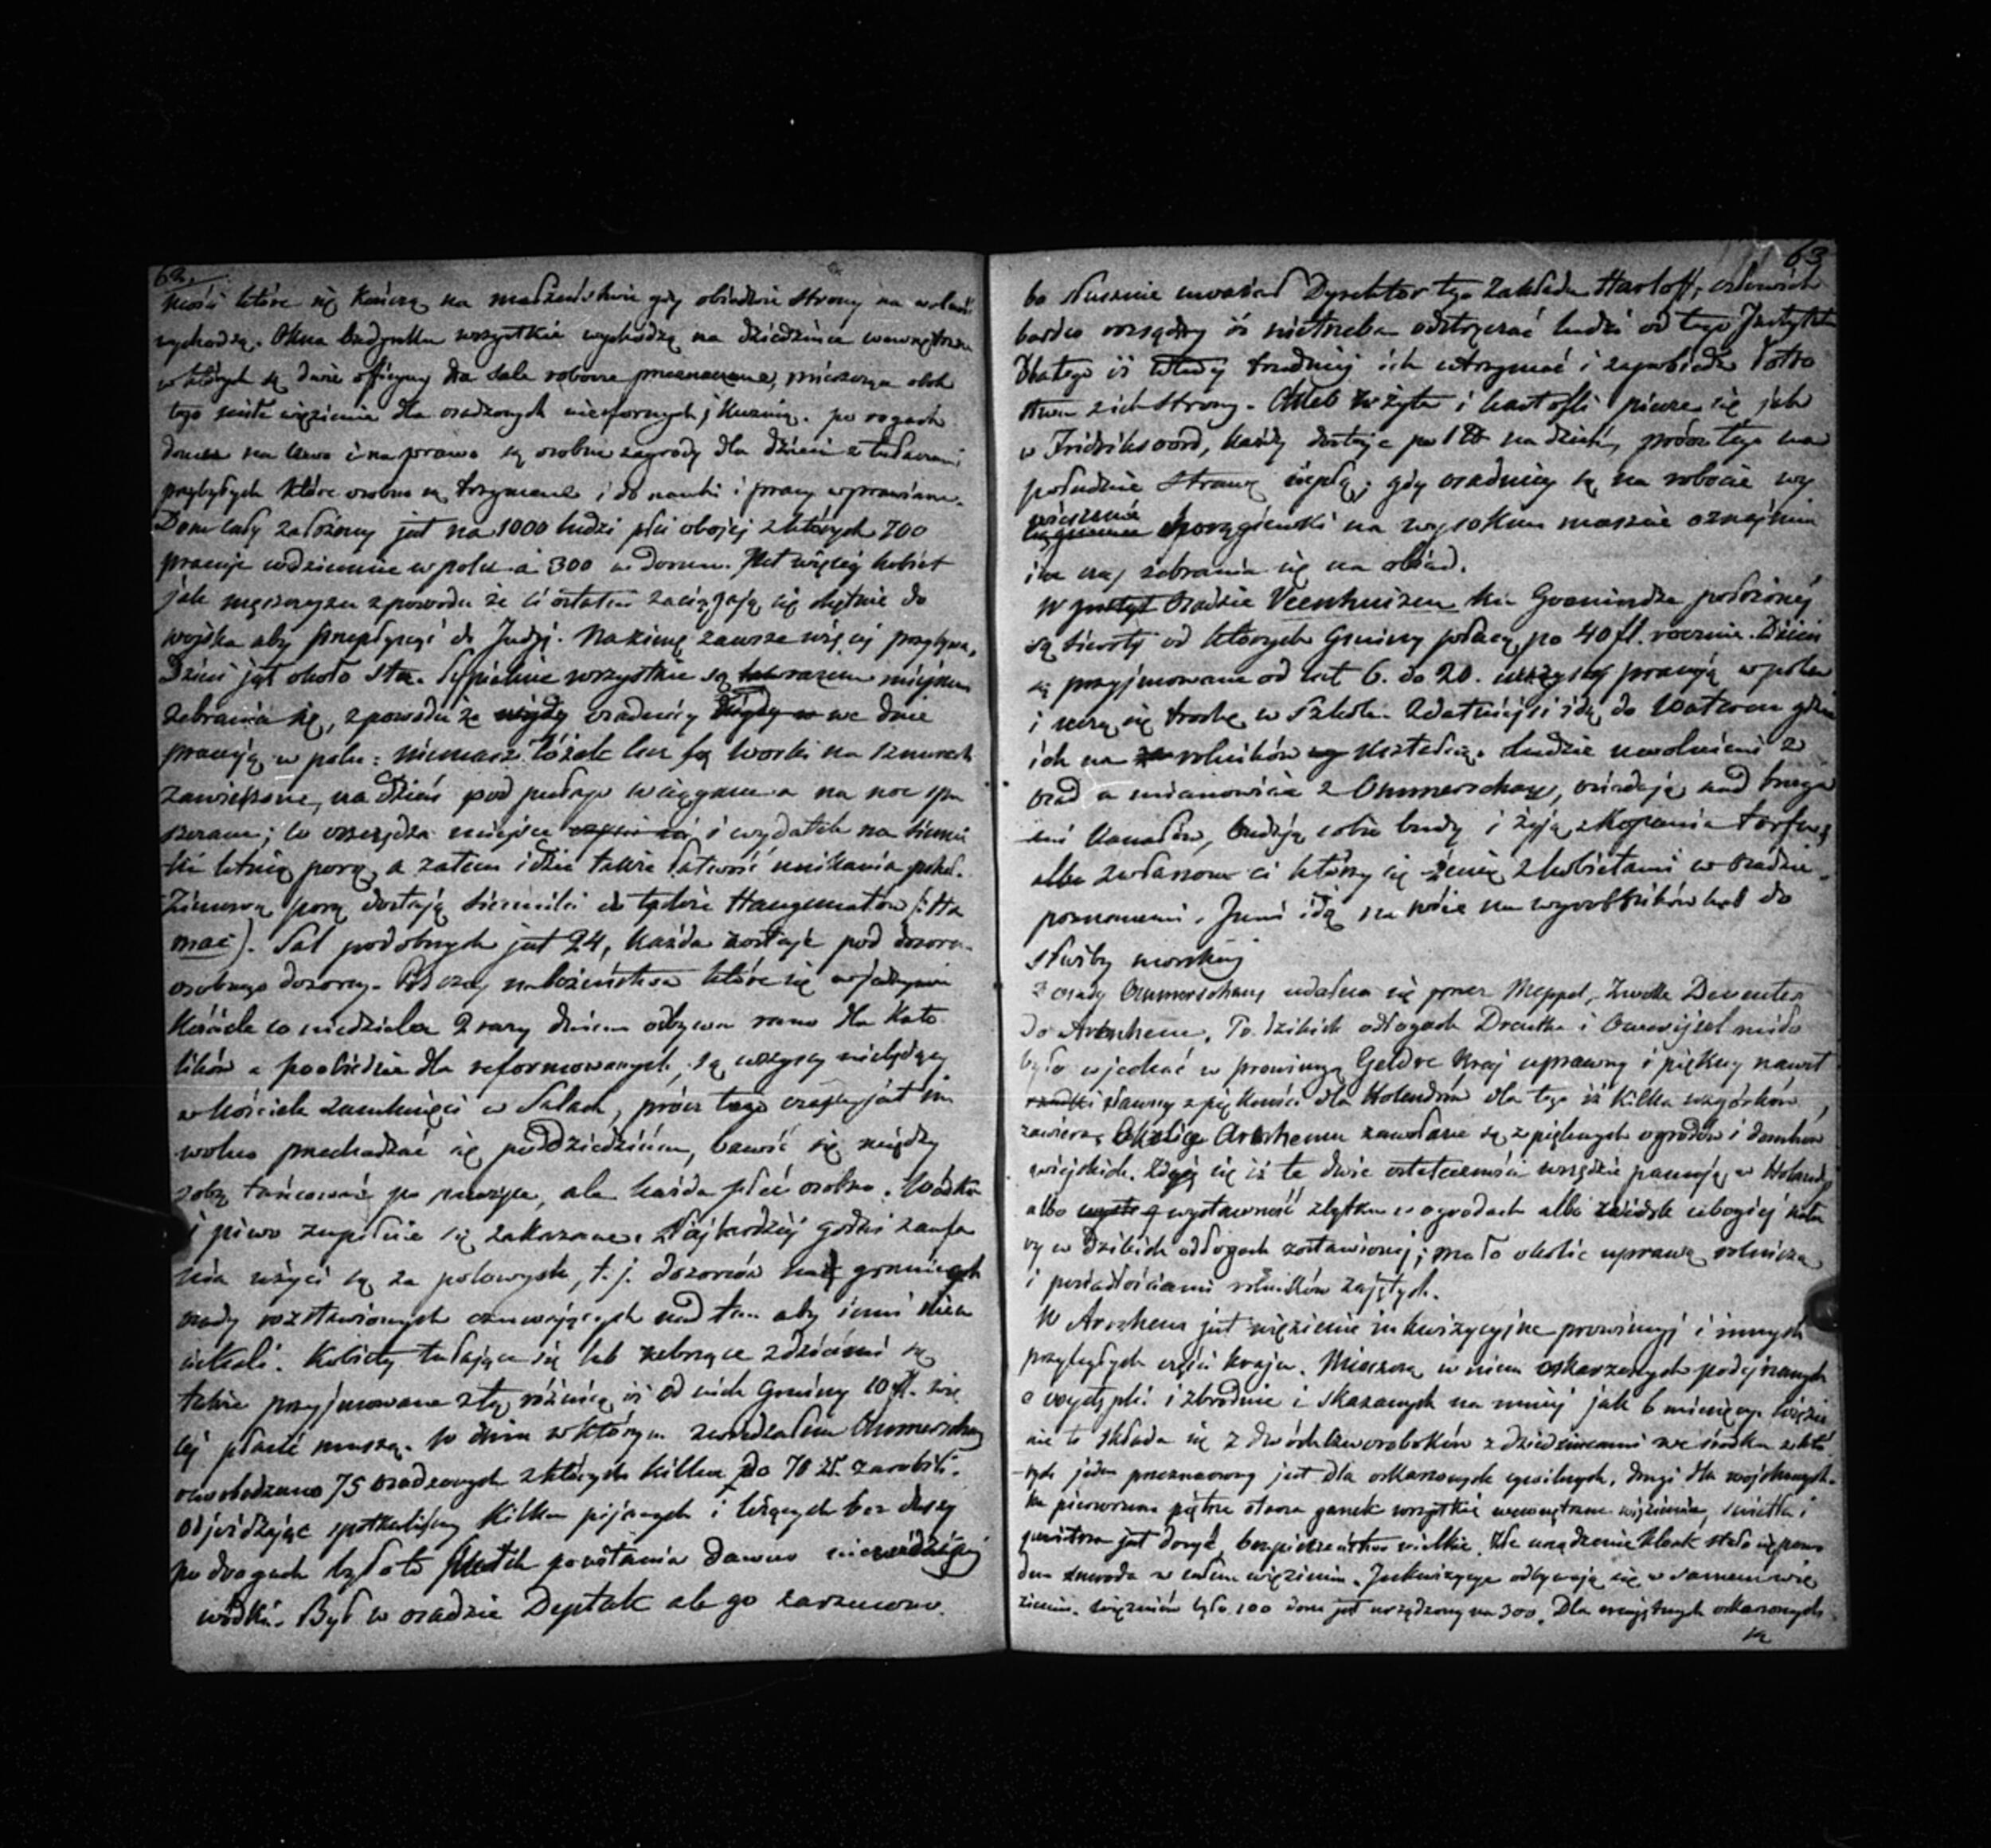 62.
które się kończą na małżeństwie gdy obiedwie strony na wolność
wychodzą. Okna budynku wszystkie wychodzą na dziedziniec wewnątrz
w których są dwie oficyny dla sale robocze przeznaczone, mieszczą obok
tego więzienie dla osadzonych niesfornych i kuźnię. po rogach
domu na lewo i na prawo są osobne zagrody dla dzieci z tułaczami
przybyłych które osobno są trzymane i do nauki i pracy wprawiane.
Dom cały założony jest na 1000 ludzi płci obojej z których 700
pracuje codziennie w polu a 300 w domu. Jest więcej kobiet
jak mężczyzn z powodu że ci ostatni zaciągają się chętnie do
wojska aby przepłynąć do Indyj. Na zimę zawsze więcej przybywa,
Dzieci jest około sta. Sypialnie wszystkie są razem miejscem
zebrania się, z powodu że osadnicy we dnie
pracują w polu: niemasz łóżek lecz są worki na sznurach
zawieszone, na dzień pod pułap wciągane a na noc spu
szczane; to oszczędza miejsce i wydatek na sienniki
letnią porą, a zatem idzie także łatwość unikania
Zimową porą dostają sienniki do tychże Hangematów (: Ha
mac). Sal podobnych jest 24, każda zostaje pod dozorem
osobnego dozorcy. Podczas nabożeństwa które się w jednym
kościele co niedziela 2 razy dziennie odbywa rano dla Kato
lików a po obiedzie dla reformowanych, są wszyscy niebędący
w kościele zamknięci w Salach, prócz tego czasu jest im
wolno przechadzać się po dziedzińcu, bawić się między
sobą tańcować po muzyce, ale każda płeć osobno. Wódka
i piwo zupełnie są zakazane. Najbardziej godni zaufa
nia użyci są za polowych, t. j. dozorców na granicach
osady rozstawionych czuwających nad tem aby inni nieu
ciekali. Kobiety tułające się lub żebrzące z dziećmi są
także przyjmowane z tą różnicą iż od nich Gminy 10 fl. wię
cej płacić muszą. W dniu w którym zwiedzałem Ommerschany
oswobodzono 75 osadzonych z których kilku do 70 zł. zarobili.
odjeżdżając spotkaliśmy kilku pijanych i leżących bez duszy
po drogach było to skutek powstania dawno niewidzianej
wódki. Był w osadzie Deptak ale go zarzucono.
63
bo słusznie uważał Dyrektor tego Zakładu Harloff, człowiek
bardzo rozsądny iż nietrzeba odstręczać ludzi od tego Instytutu
Dlatego iż wtedy trudniej ich utrzymać i zapobiedz łotro
stwu z ich strony. Chleb z żyta i kartofli piecze się jak
w Fridriksoord, każdy dostaje po 1 ℔ na dzień, prócz tego na
południe strawę ciepłą; gdy osadnicy są na robocie wy
wieszenie chorągiewki na wysokim maszcie oznajmia
im czas zebrania się na obiad.
W Osadzie Veenhuizen ku Gronindze położonej
są sieroty od których Gminy płacą po 40 fl. rocznie. Dzieci
są przyjmowane od lat 6. do 20. wszyscy pracują w polu
i uczą się trochę w Szkole. Zdatniejsi idą do Wateren gdzie
ich na rolników kształcą. Ludzie uwolnieni z
osad a mianowicie z Ommerschany, osiadają nad brzega
mi kanałów, budują sobie budy i żyją z kopania torfu,
albo zwłaszcza ci którzy się żenią z kobietami w osadzie
poznanemi. Inni idą na wsie na wyrobników lub do
służby morskiej
z osady Ommerschany udałem się przez Meppel, Zwolle Deventer
do Arnhem. Po dzikich odłogach Drenthe i Overijsel miło
było wjechać w prowincyą Geldre kraj uprawny i piękny nawet
sławny z piękności dla Holendrów dla tego iż kilka wzgórków
zawiera, okolice Arnhemu zawołane są z pięknych ogrodów i domków
wiejskich. Zdaje się iż te dwie ostateczności wszędzie panują w Holandyi
albo wystawność zbytku w ogrodach albo widok ubogiej natu
ry w dzikich odłogach zostawionej; mało okolic uprawą rolniczą
i posiadłościami rolników zajętych.
W Arnhem jest więzienie inkwizycyjne prowincyj i innych
przyległych części kraju. Mieszczą w niem oskarzonych podejrzanych
o występki i zbrodnie i skazanych na mniej jak 6 miesięcy. Więzie
nie to składa się z dwóch czworoboków z dziedzińcami we środku z któ
rych jeden przeznaczony jest dla oskarzonych cywilnych, drugi dla wojskowych.
Na pierwszem piętrze otacza ganek wszystkie wewnętrzne więzienia, światła i
powietrza jest dosyć, bezpieczeństwo wielkie. Złe urządzenie kloak stało się powo
dem smrodu w całem więzieniu. Inkwizycye odbywają się w samem wię
zieniu. więźniów było 100 dom jest urządzony na 300. Dla oskarzonych
są